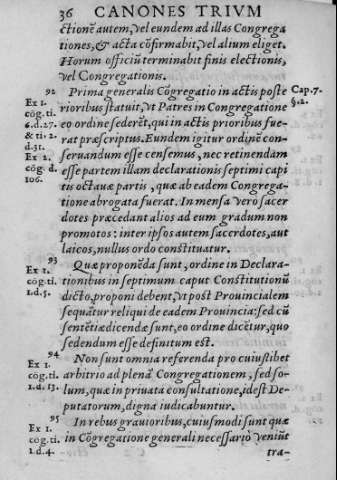 36 CANONES TRIVM
ctionē autem, vel eundem ad illas Congrega
tiones, & acta cōfirmabit, vel alium eliget.
Horum officiū terminabit finis electionis,
vel Congregationis.
92 Prima generalis Cōgregatio in actis poste Cap.7.
Ex 1. rioribus statuit, vt Patres in Congregatione §.2.
cōg. ti. eo ordine sederēt, qui in actis prioribus fue-
6.d.27.
& ti. 2. rat præscriptus. Eundem igitur ordinē con-
d.31.
Ex 2. seruandum esse censemus, nec retinendam
cōg. d. esse partem illam declarationis septimi capi
106. tis octauæ partis, quæ ab eadem Congrega-
tione abrogata fuerat. In mensa vero sacer
dotes præcedant alios ad eum gradum non
promotos: inter ipsos autem sacerdotes, aut
laicos, nullus ordo constituatur.
93 Quæ proponēda sunt, ordine in Declara-
Ex 1. tionibus in septimum caput Constitutionū
cōg. ti. dicto, proponi debent, vt post Prouincialem
1.d.5. sequātur reliqui de eadem Prouincia: sed cū
sentētiæ dicendæ sunt, eo ordine dicētur, quo
sedendum esse definitum est.
94 Non sunt omnia referenda pro cuiuslibet
Ex 1. arbitrio ad plenā Congregationem, sed so-
cōg. ti.
1.d.13. lum, quæ in priuata consultatione, idest De-
putatorum, digna iudicabuntur.
95 In rebus grauioribus, cuiusmodi sunt quæ
Ex 1.
cōg. ti. in Cōgregatione generali necessario veniūt
1.d.4. tra-